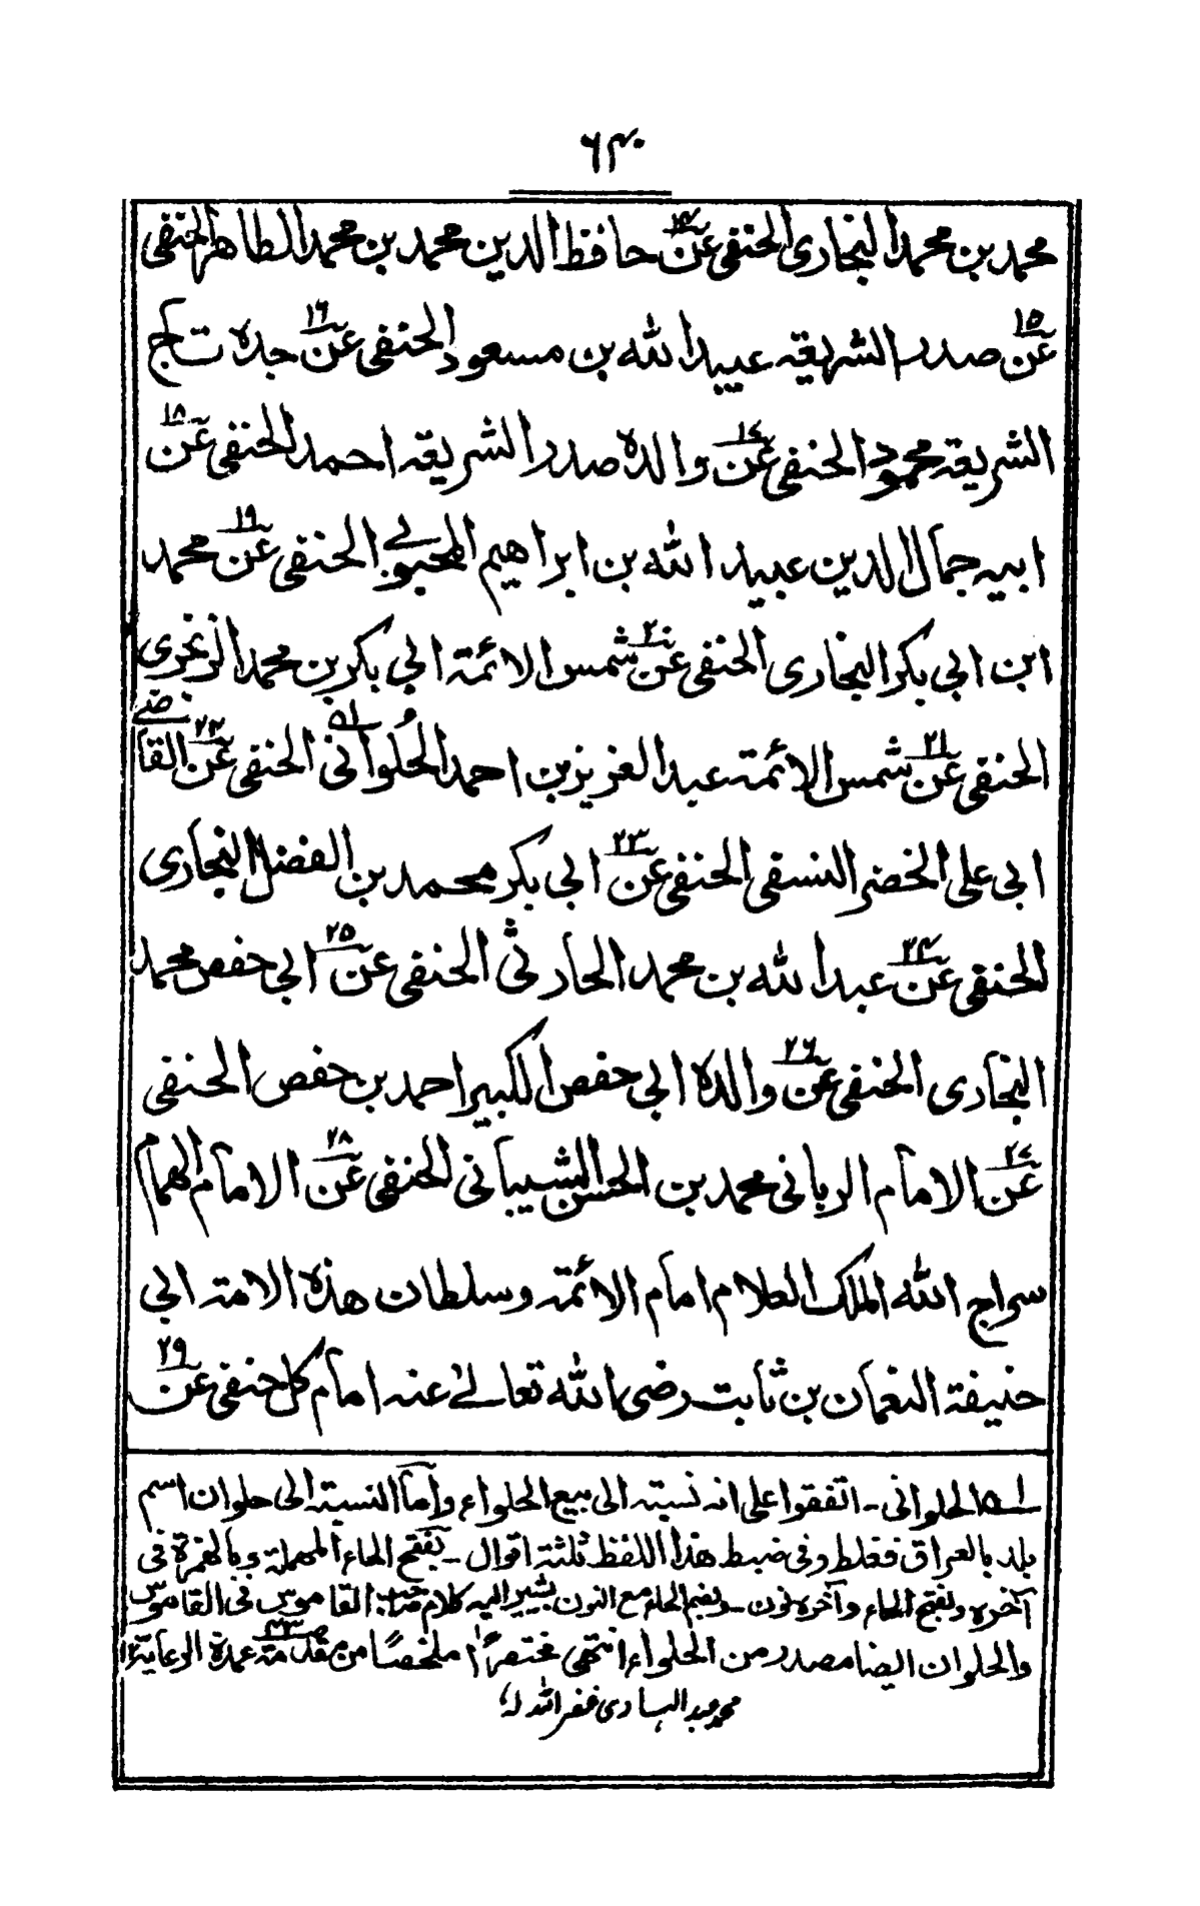 ۶۴۰
محمد بن محمد البخاری الحنفی عن۱۴ حافظ الدین محمد بن محمد الطاهر الحنفی
عن۱۵ صدر الشریعۃ عبید اللہ بن مسعود الحنفی عن۱۶ جدہ تاج
الشریعۃ محمود الحنفی عن۱۷ والدہ صدر الشریعۃ احمد الحنفی عن۱۸
ابیہ جمال الدین عبید اللہ بن ابراھیم المحبوبی الحنفی عن۱۹ محمد
ابن ابی بکر البخاری الحنفی عن۲۰ شمس الائمۃ ابی بکر بن محمد الزرنجری
الحنفی عن۲۱ شمس الائمۃ عبد العزیز بن احمد الحُلوانی لہ الحنفی عن۲۲ القاضی
ابی علی الخضر النسفی الحنفی عن۲۳ ابی بکر محمد بن الفضل البخاری
الحنفی عن۲۴ عبد اللہ بن محمد الحارثی الحنفی عن۲۵ ابی حفص محمد
البخاری الحنفی عن۲۶ والدہ ابی حفص الکبیر احمد بن حفص الحنفی
عن۲۷ الامام الربانی محمد بن الحسن الشیبانی الحنفی عن۲۸ الامام الهمام
سراج اللہ الملک العلام امام الائمۃ وسلطان هذہ الامۃ ابی
حنیفۃ النعمان بن ثابت رضی اللہ تعالیٰ عنہ امام کل حنفی عن۲۹
لہ الحلوانی۔ اتفقوا علی انہ نسبتہ الی بیع الحلواء واما النسبۃ الی حلوان اسم
بلد بالعراق فغلط وفی ضبط هذا اللفظ ثلثۃ اقوال۔ بفتح الحاء المهملۃ وبالهمزة فی
آخرہ وبفتح الحاء وآخرہ نون۔ وبضم الحاء مع النون یشیر الیہ کلام صاحب القاموس فی القاموس
والحلوان ایضا مصدر من الحلواء انتهی مختصراً ملخصًا من مقدمۃ عمدۃ الرعایۃ ص۳۳ ۱۲
محمد عبد الہادی غفر اللہ لہ